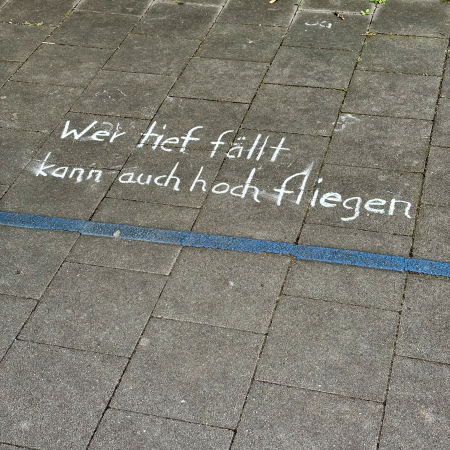 Ja
Wer tief fällt
kann auch hoch fliegen